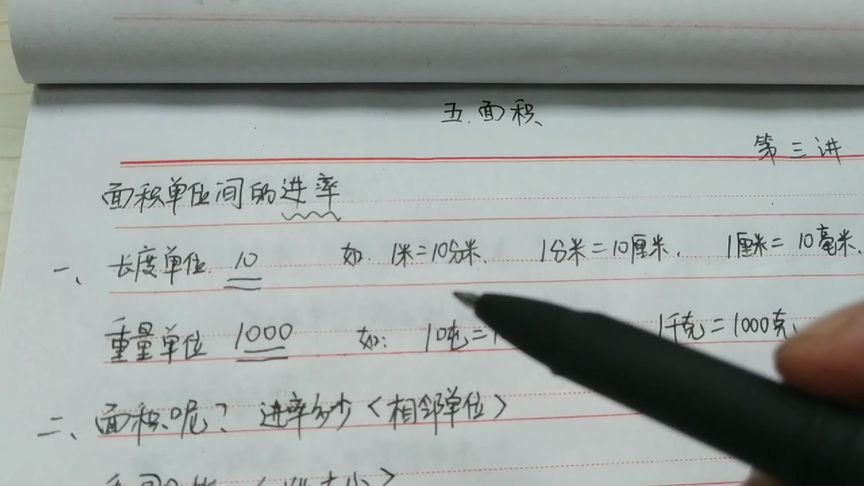 五.面积
第三讲
面积单位间的进率
一、长度单位 10 如.1米=10分米. 1分米=10厘米. 1厘米=10毫米.
重量单位 1000 如: 1吨=1 1千克=1000克.
二、面积呢? 进率多少<相邻单位>